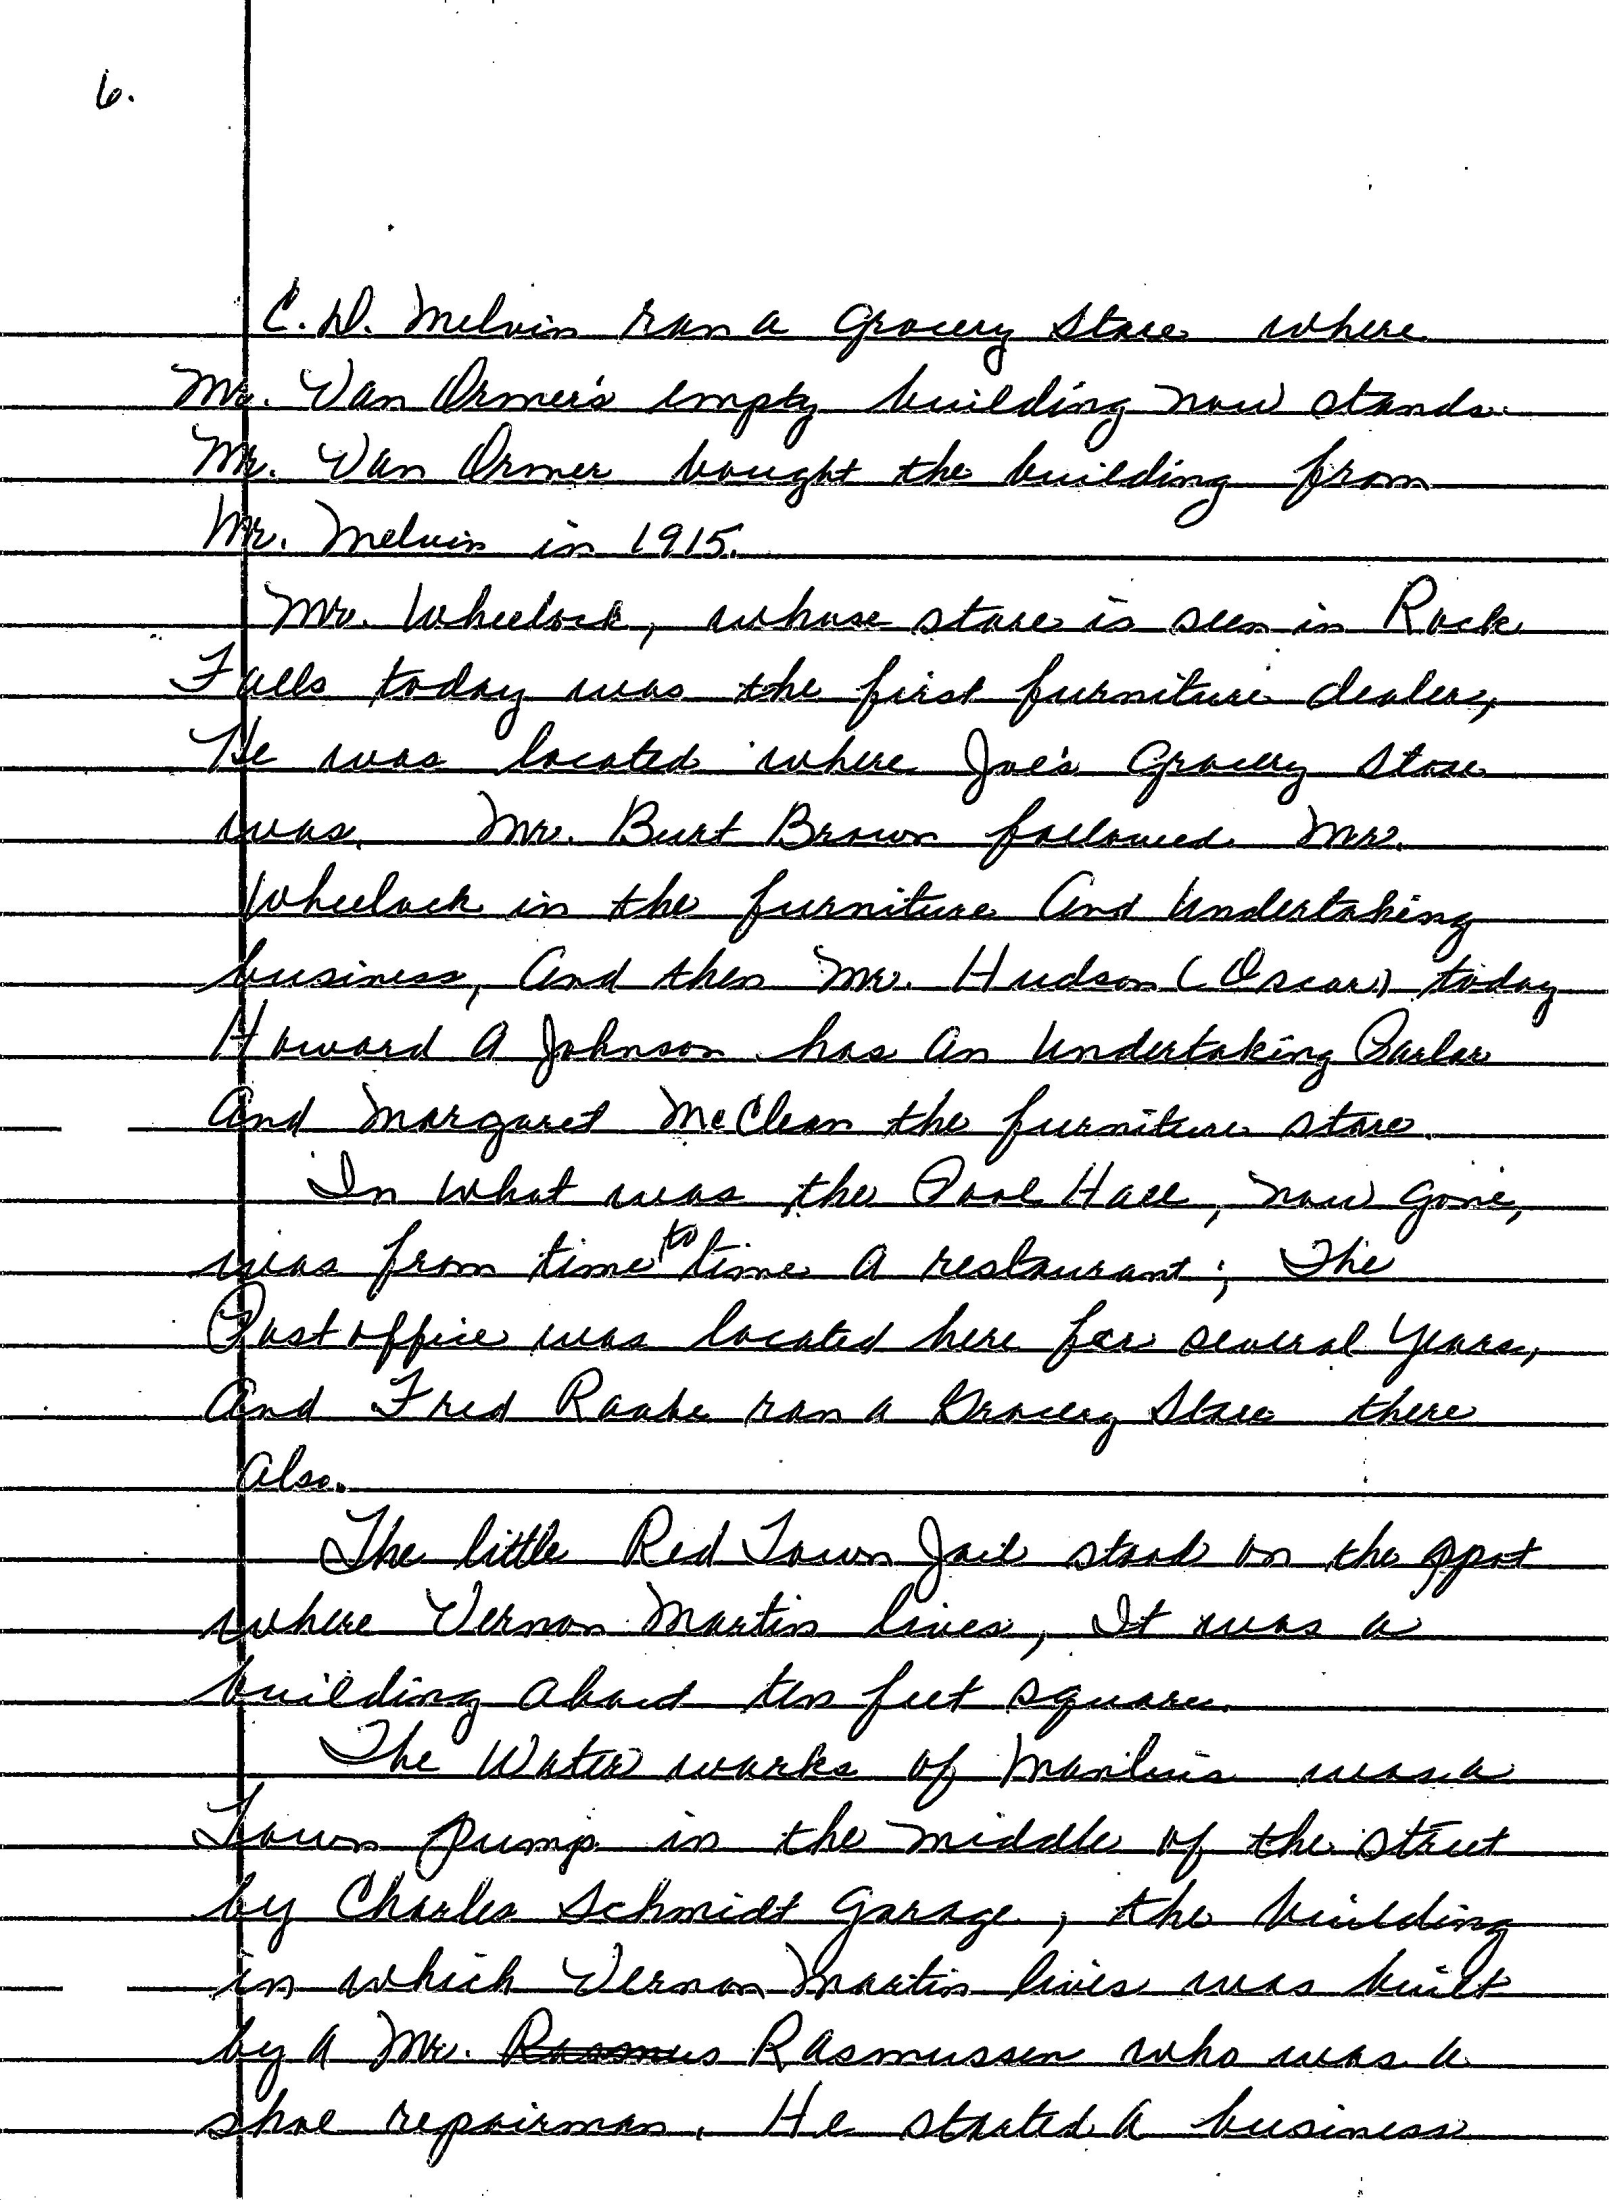 6.
C. D. Melvin ran a Grocery Store where
Mr. Van Ormer's empty building now stands.
Mr. Van Ormer bought the building from
Mr. Melvin in 1915.
Mr. Wheelock, whose store is seen in Rock
Falls today was the first furniture dealer,
He was located where Joe's Grocery Store
was. Mr. Burt Brown followed Mr.
Wheelock in the furniture And Undertaking
business, And then Mr. Hudson (Oscar) today
Howard A Johnson has An Undertaking Parlor
And Margaret McClean the furniture store.
In what was the Pool Hall, now gone,
was from time to time A restaurant; The
Post office was located here for several years,
And Fred ran a Grocery Store there
Also.
The little Red Town Jail stood on the spot
where Vernon Martin lives, It was a
building About ten feet square.
The Water works of Manlius was a
Town pump in the middle of the street
by Charles Schmidt Garage, the building
in which Vernon Martin lives was built
by A Mr. Rasmus Rasmussen who was a
shoe repairman. He started A business